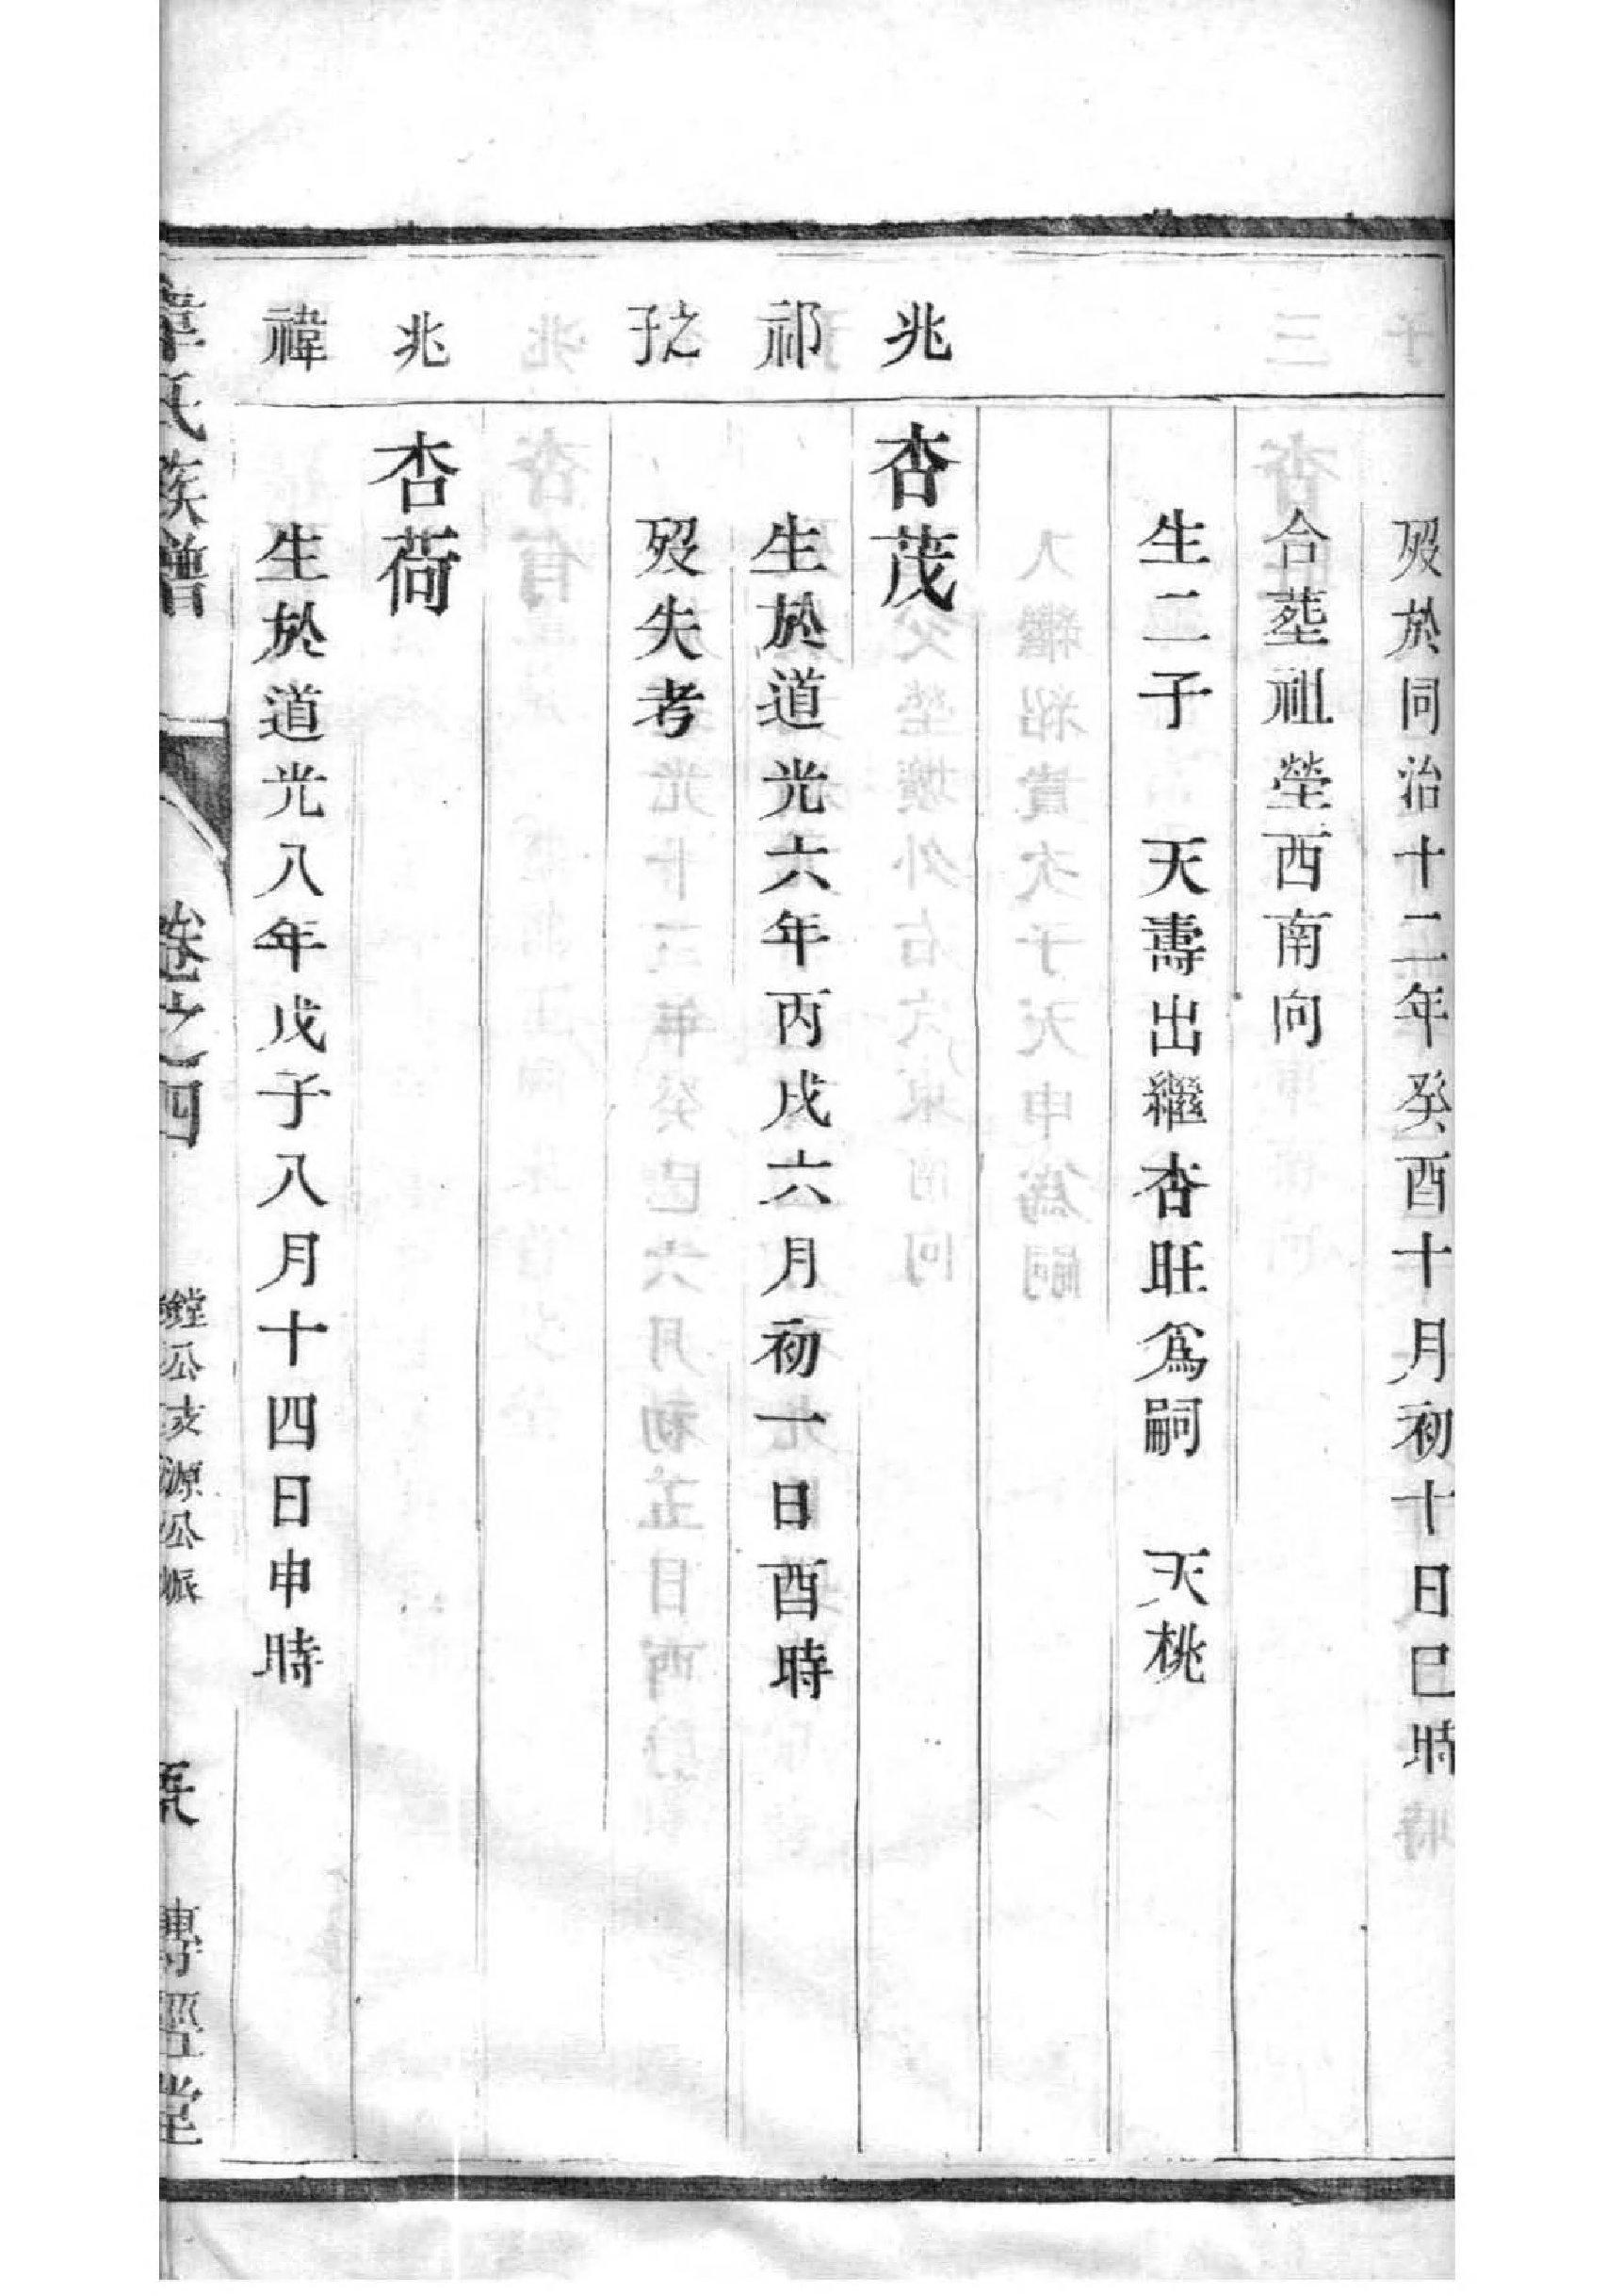 歿於同治十二年癸酉十月初十日巳時
合葬祖塋西南向
生二子　天壽出繼杏旺爲嗣　天桃
兆
杏茂
祁
生於道光六年丙戌六月初一日酉時
孜
歿失考
兆
杏荷
禕
生於道光八年戊子八月十四日申時
韋氏族譜　卷之四　鏜公支源公派　傳經堂